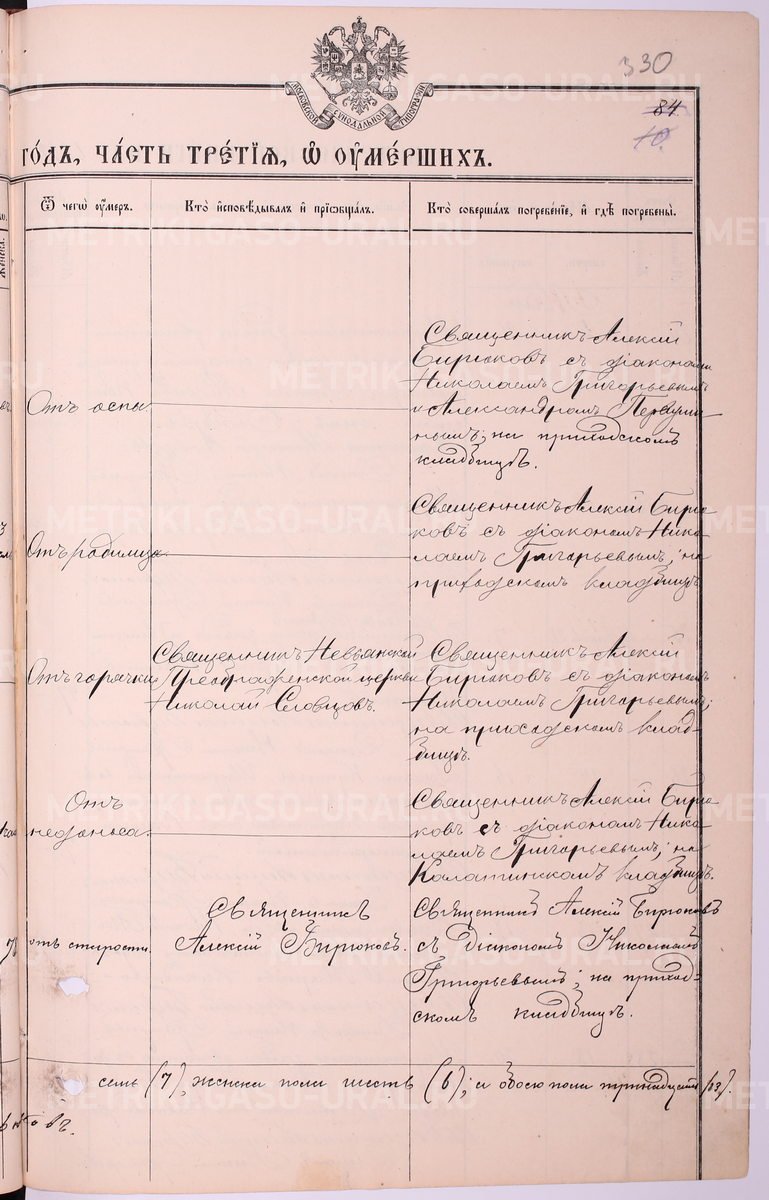 330
84.
10.
МОСКОВСКОЙ СѴНОДАЛЬНОЙ ТИПОГРАФІИ
ГО́ДЪ, ЧА́СТЬ ТРЕ́ТІѦ, Ѡ҆ ОУ҆МЕ́РШИХЪ.
Ѿ чегѡ̀ оу҆́меръ.
Кто̀ и҆сповѣ́дывалъ и҆ прїѡбща́лъ.
Кто̀ соверша́лъ погребе́нїе, и҆ гдѣ̀ погребены̀.
Женска.
Отъ оспы.
Священникъ Алексій
Бирюковъ съ діаконами
Николаемъ Григорьевымъ
и Александромъ Первуши-
нымъ; на приходскомъ
кладбищѣ.
Отъ родимца.
Священникъ Алексій Бирю-
ковъ съ діакономъ Нико-
лаемъ Григорьевымъ; на
приходскомъ кладбищѣ
Отъ горячки
Священникъ Невьянской
Преображенской церкви
Николай Словцовъ.
Священникъ Алексій
Бирюковъ съ діакономъ
Николаемъ Григорьевымъ;
на приходскомъ клад-
бищѣ.
Отъ
недоноса.
Священникъ Алексій Бирю-
ковъ съ діакономъ Нико-
лаемъ Григорьевымъ; на
Калатинскомъ кладбищѣ.
отъ старости.
Священникъ
Алексій Бирюковъ.
Священникъ Алексій Бирюковъ
съ Діакономъ Николаемъ
Григорьевымъ; на приход-
скомъ кладбищѣ.
семь (7), женска пола шесть (6); а обоего пола тринадцать (13).
METRIKI.GASO-URAL.RU